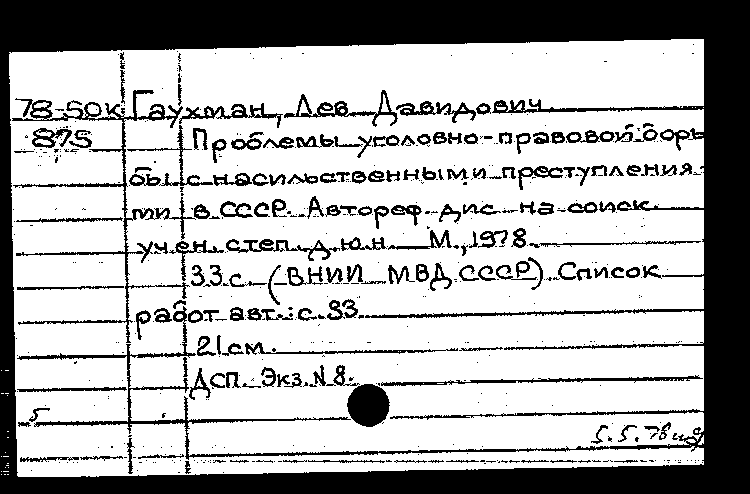 78-50к Гаухман, Лев Давидович.
875 Проблемы уголовно-правовой борь
бы с насильственными преступления-
ми в СССР. Автореф. дис. на соиск.
учен. степ. д.ю.н. М., 1978.
33 с. (ВНИИ МВД СССР). Список
работ авт.: с. 33
21 см.
ДСП. Экз. N 8.
5
5.5.78